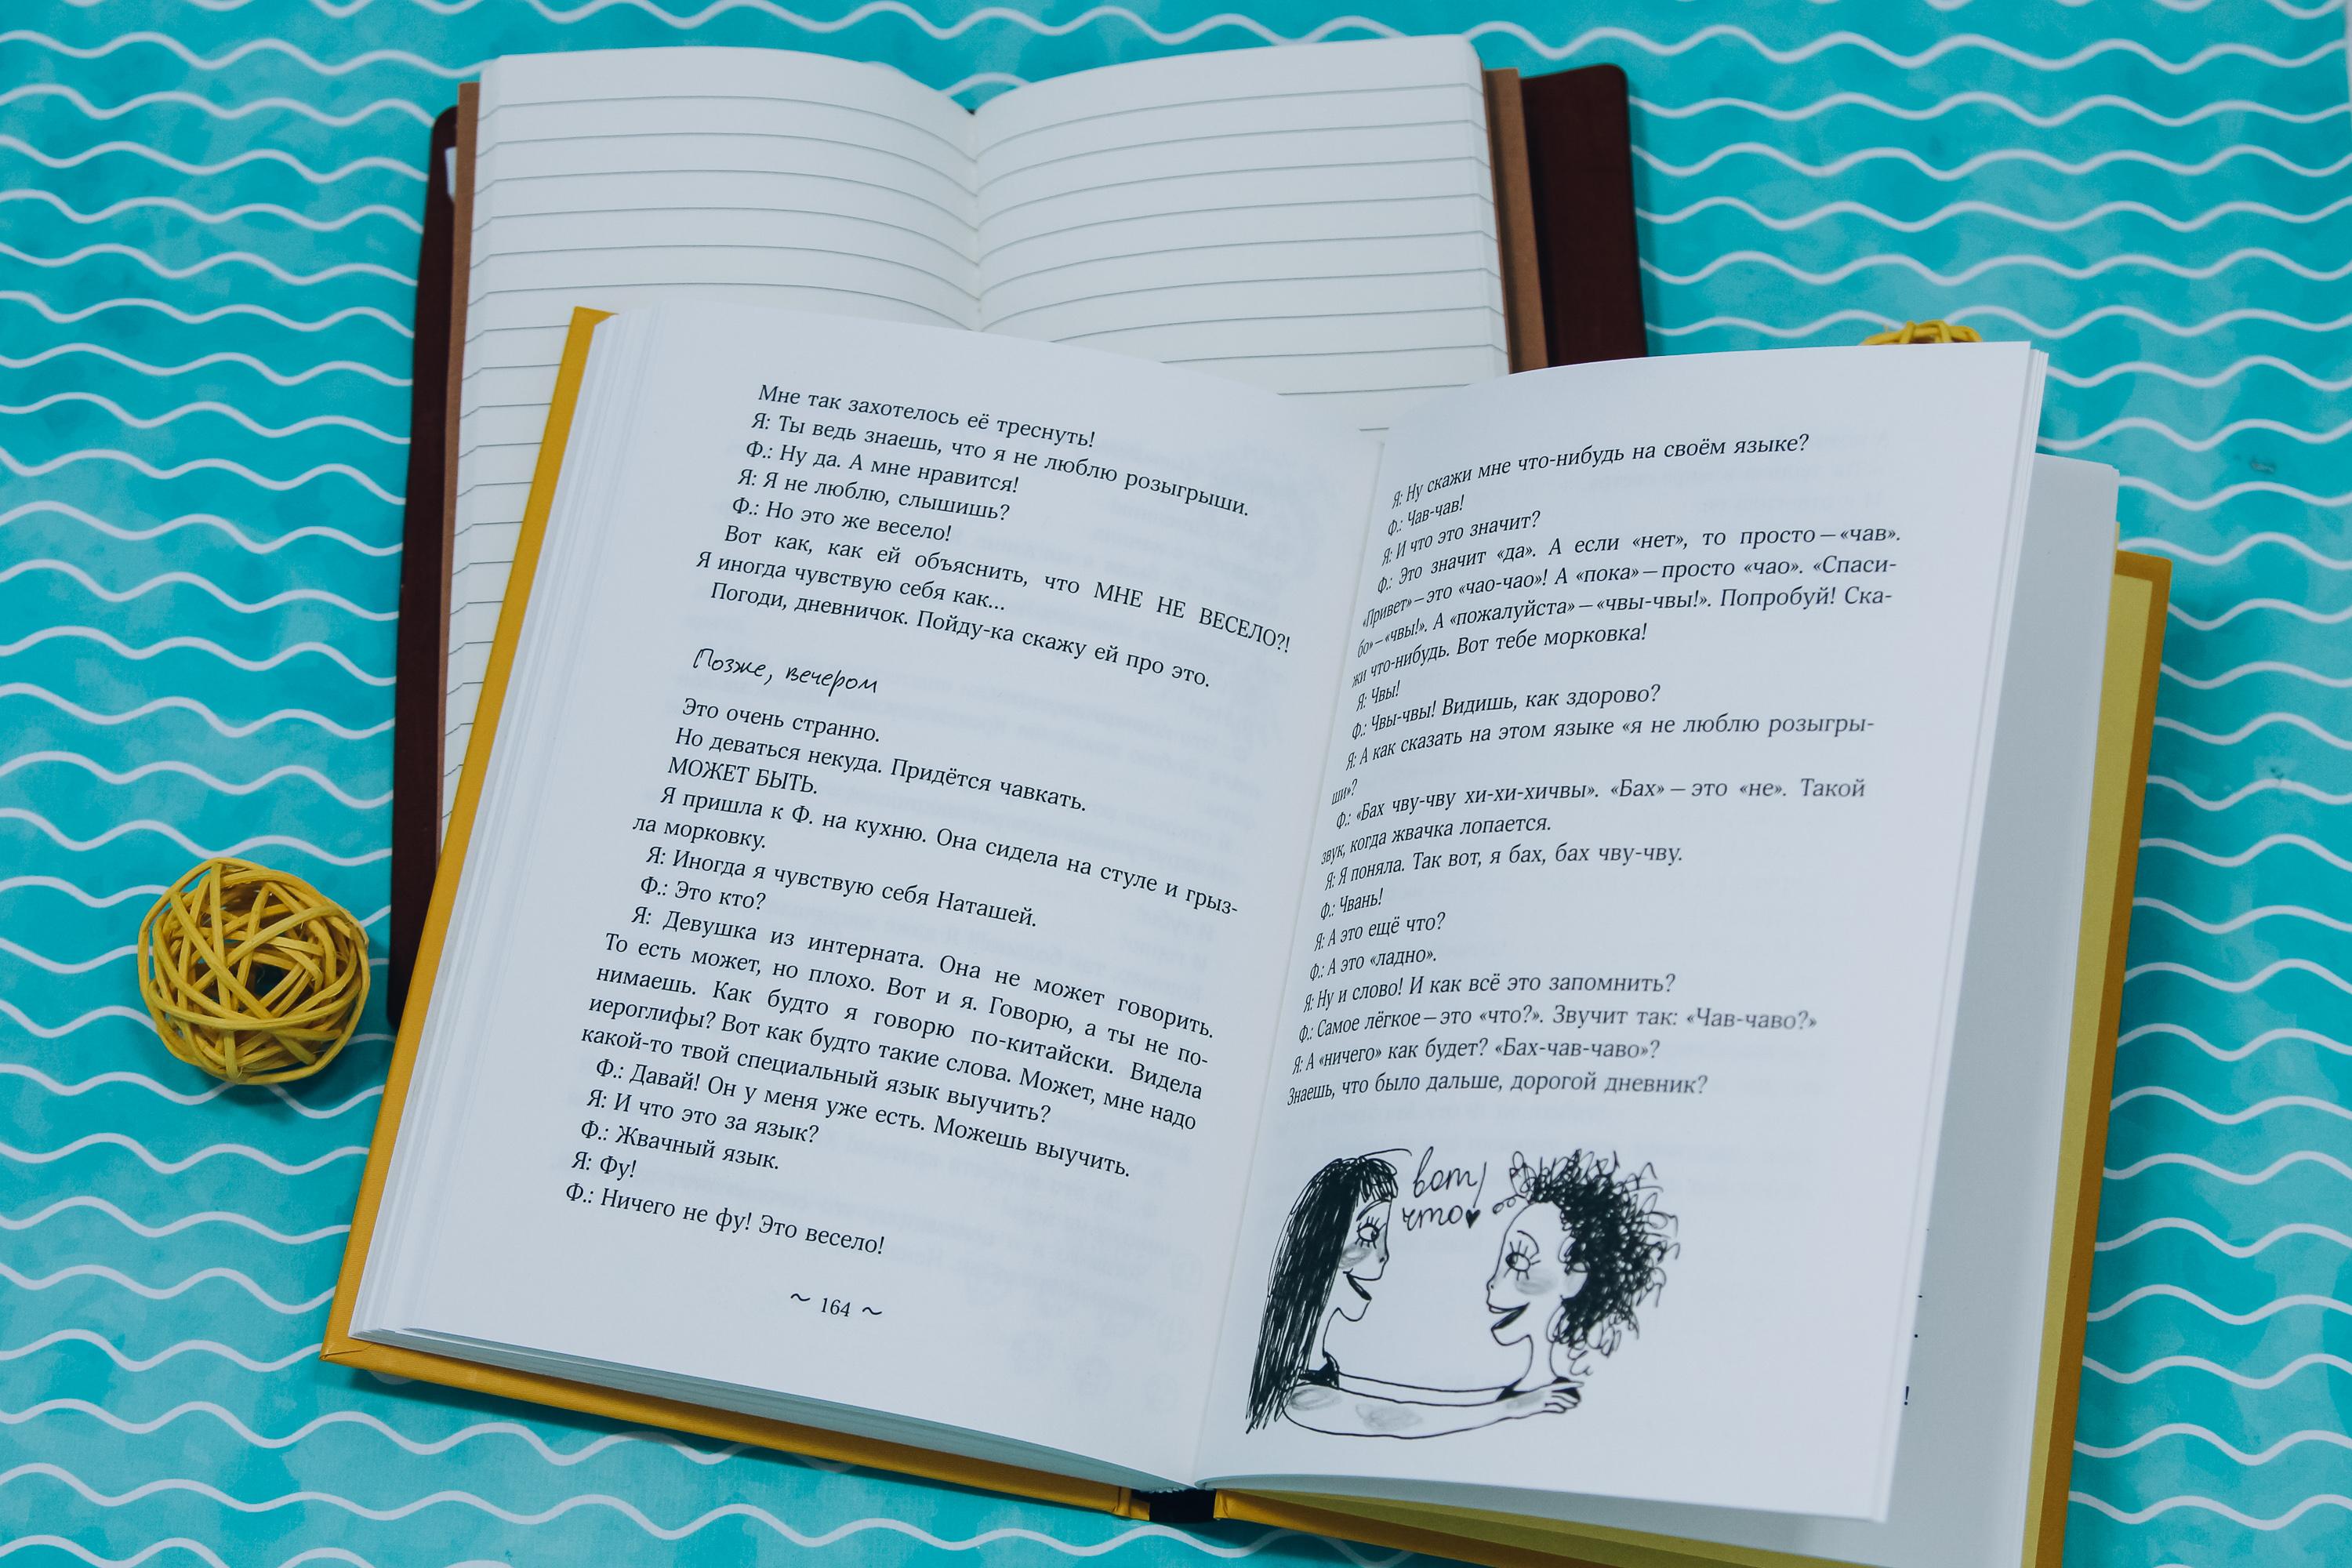 Мне так захотелось её треснуть!
Я: Ты ведь знаешь, что я не люблю розыгрыши.
Ф.: Ну да. А мне нравится!
Я: Я не люблю, слышишь?
Ф.: Но это же весело!
Вот как, как ей объяснить, что МНЕ НЕ ВЕСЕЛО?!
Я иногда чувствую себя как...
Погоди, дневничок. Пойду-ка скажу ей про это.
Позже, вечером
Это очень странно.
Но деваться некуда. Придётся чавкать.
МОЖЕТ БЫТЬ.
Я пришла к Ф. на кухню. Она сидела на стуле и грыз-
ла морковку.
Я: Иногда я чувствую себя Наташей.
Ф.: Это кто?
Я: Девушка из интерната. Она не может говорить.
То есть может, но плохо. Вот и я. Говорю, а ты не по-
нимаешь. Как будто я говорю по-китайски. Видела
иероглифы? Вот как будто такие слова. Может, мне надо
какой-то твой специальный язык выучить?
Ф.: Давай! Он у меня уже есть. Можешь выучить.
Я: И что это за язык?
Ф.: Жвачный язык.
Я: Фу!
Ф.: Ничего не фу! Это весело!
~ 164 ~
Я: Ну скажи мне что-нибудь на своём языке?
Ф.: Чав-чав!
Я: И что это значит?
Ф.: Это значит «да». А если «нет», то просто — «чав».
«Привет» — это «чао-чао»! А «пока» — просто «чао». «Спаси-
бо» — «чвы!». А «пожалуйста» — «чвы-чвы!». Попробуй! Ска-
жи что-нибудь. Вот тебе морковка!
Я: Чвы!
Ф.: Чвы-чвы! Видишь, как здорово?
Я: А как сказать на этом языке «я не люблю розыгры-
ши»?
Ф.: «Бах чву-чву хи-хи-хичвы». «Бах» — это «не». Такой
звук, когда жвачка лопается.
Я: Я поняла. Так вот, я бах, бах чву-чву.
Ф.: Чвань!
Я: А это ещё что?
Ф.: А это «ладно».
Я: Ну и слово! И как всё это запомнить?
Ф.: Самое лёгкое — это «что?». Звучит так: «Чав-чаво?»
Я: А «ничего» как будет? «Бах-чав-чаво»?
Знаешь, что было дальше, дорогой дневник?
вот
что♥
!